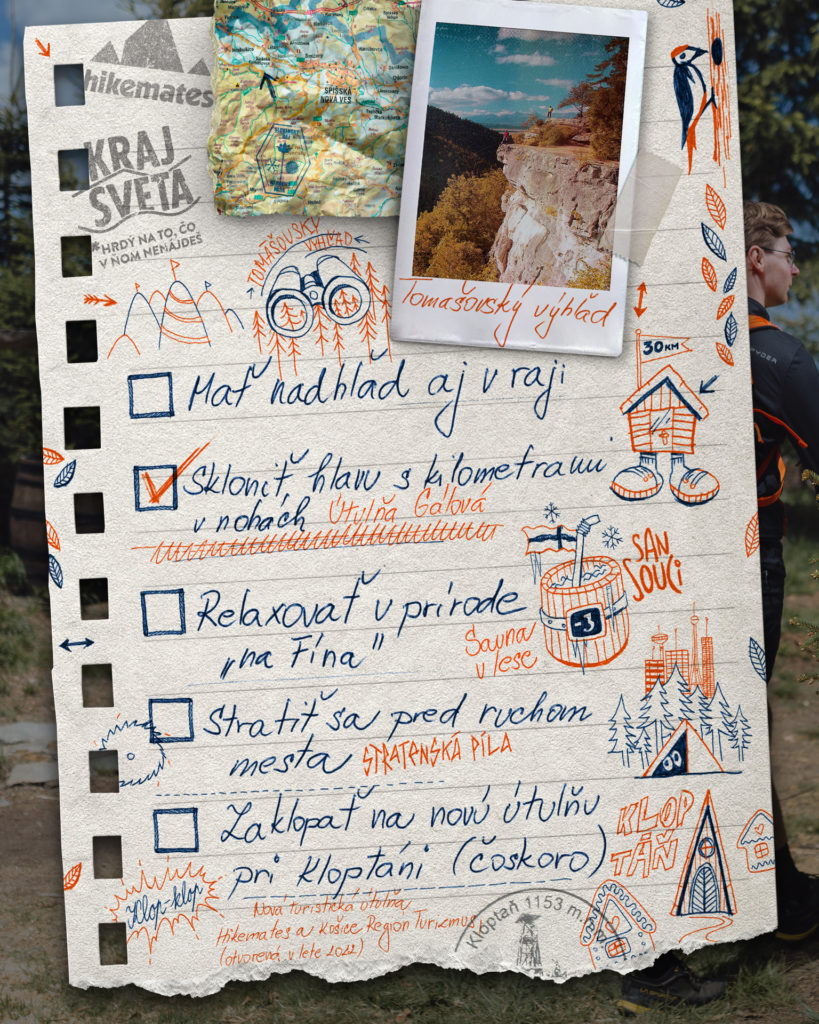 hikemates
KRAJ
SVETA
*HRDÝ NA TO, ČO
V ŇOM NENÁJDEŠ
SPIŠSKÁ
NOVÁ VES
TOMÁŠOVSKÝ
VÝHĽAD
Tomašovský výhľad
30 KM
Mať nadhľad aj v raji
Skloniť hlavu s kilometrami
v nohách Útulňa Gálová
Relaxovať v prírode
„na Fína"
-3
SAN
SOUCI
Sauna
v lese
Stratiť sa pred ruchom
mesta STRATENSKÁ PÍLA
Zaklopať na novú útulňu
pri Kloptáni (čoskoro)
KLOP
TÁŇ
Klop-klop
Nová turistická útulňa
Hikemates a Košice Región Turizmus
(otvorená v lete 2022)
Kloptáň 1153 m.n.